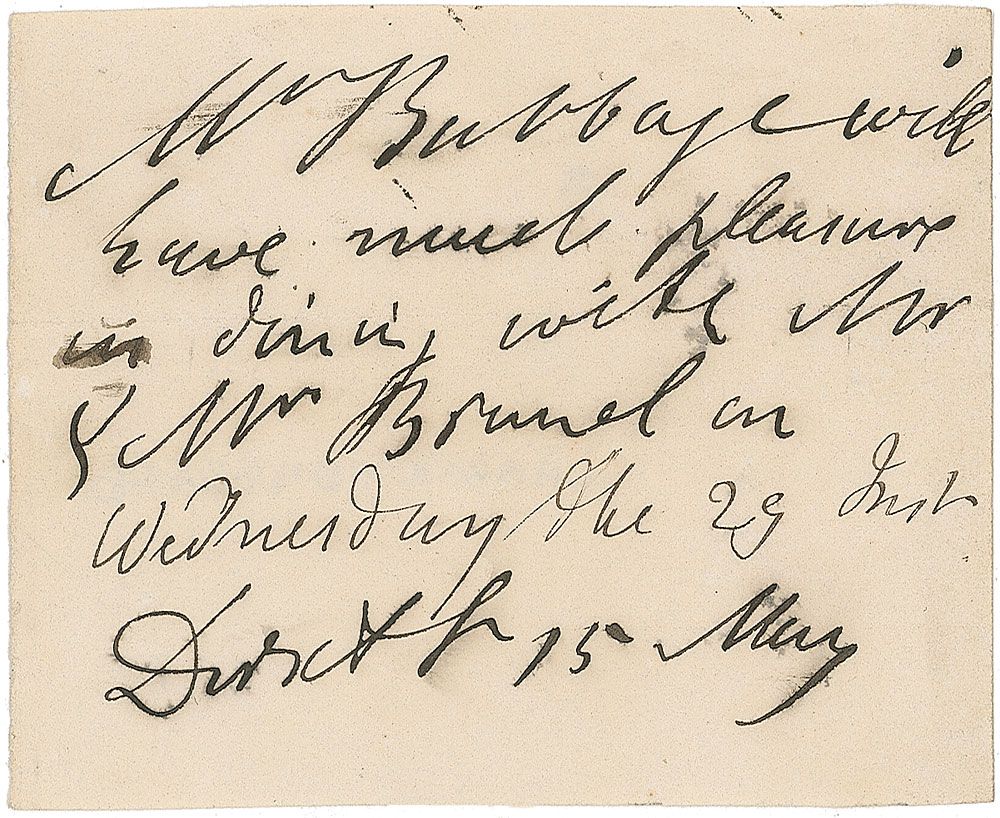 Mr Babbage will
have much pleasure
in dining with Mr
& Mrs Brunel on
Wednesday the 29 Inst
Dorset St 15 May